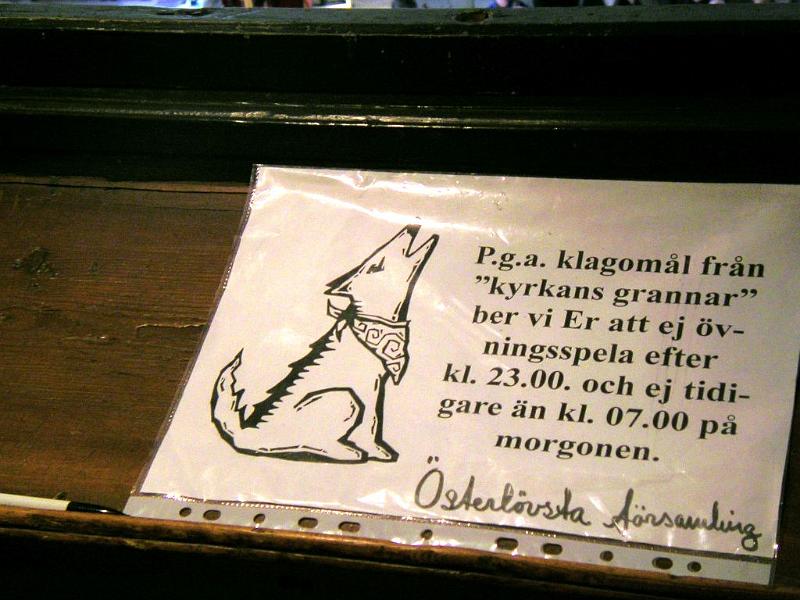 P.g.a. klagomål från
”kyrkans grannar”
ber vi Er att ej öv-
ningsspela efter
kl. 23.00. och ej tidi-
gare än kl. 07.00 på
morgonen.
Österlövsta församling